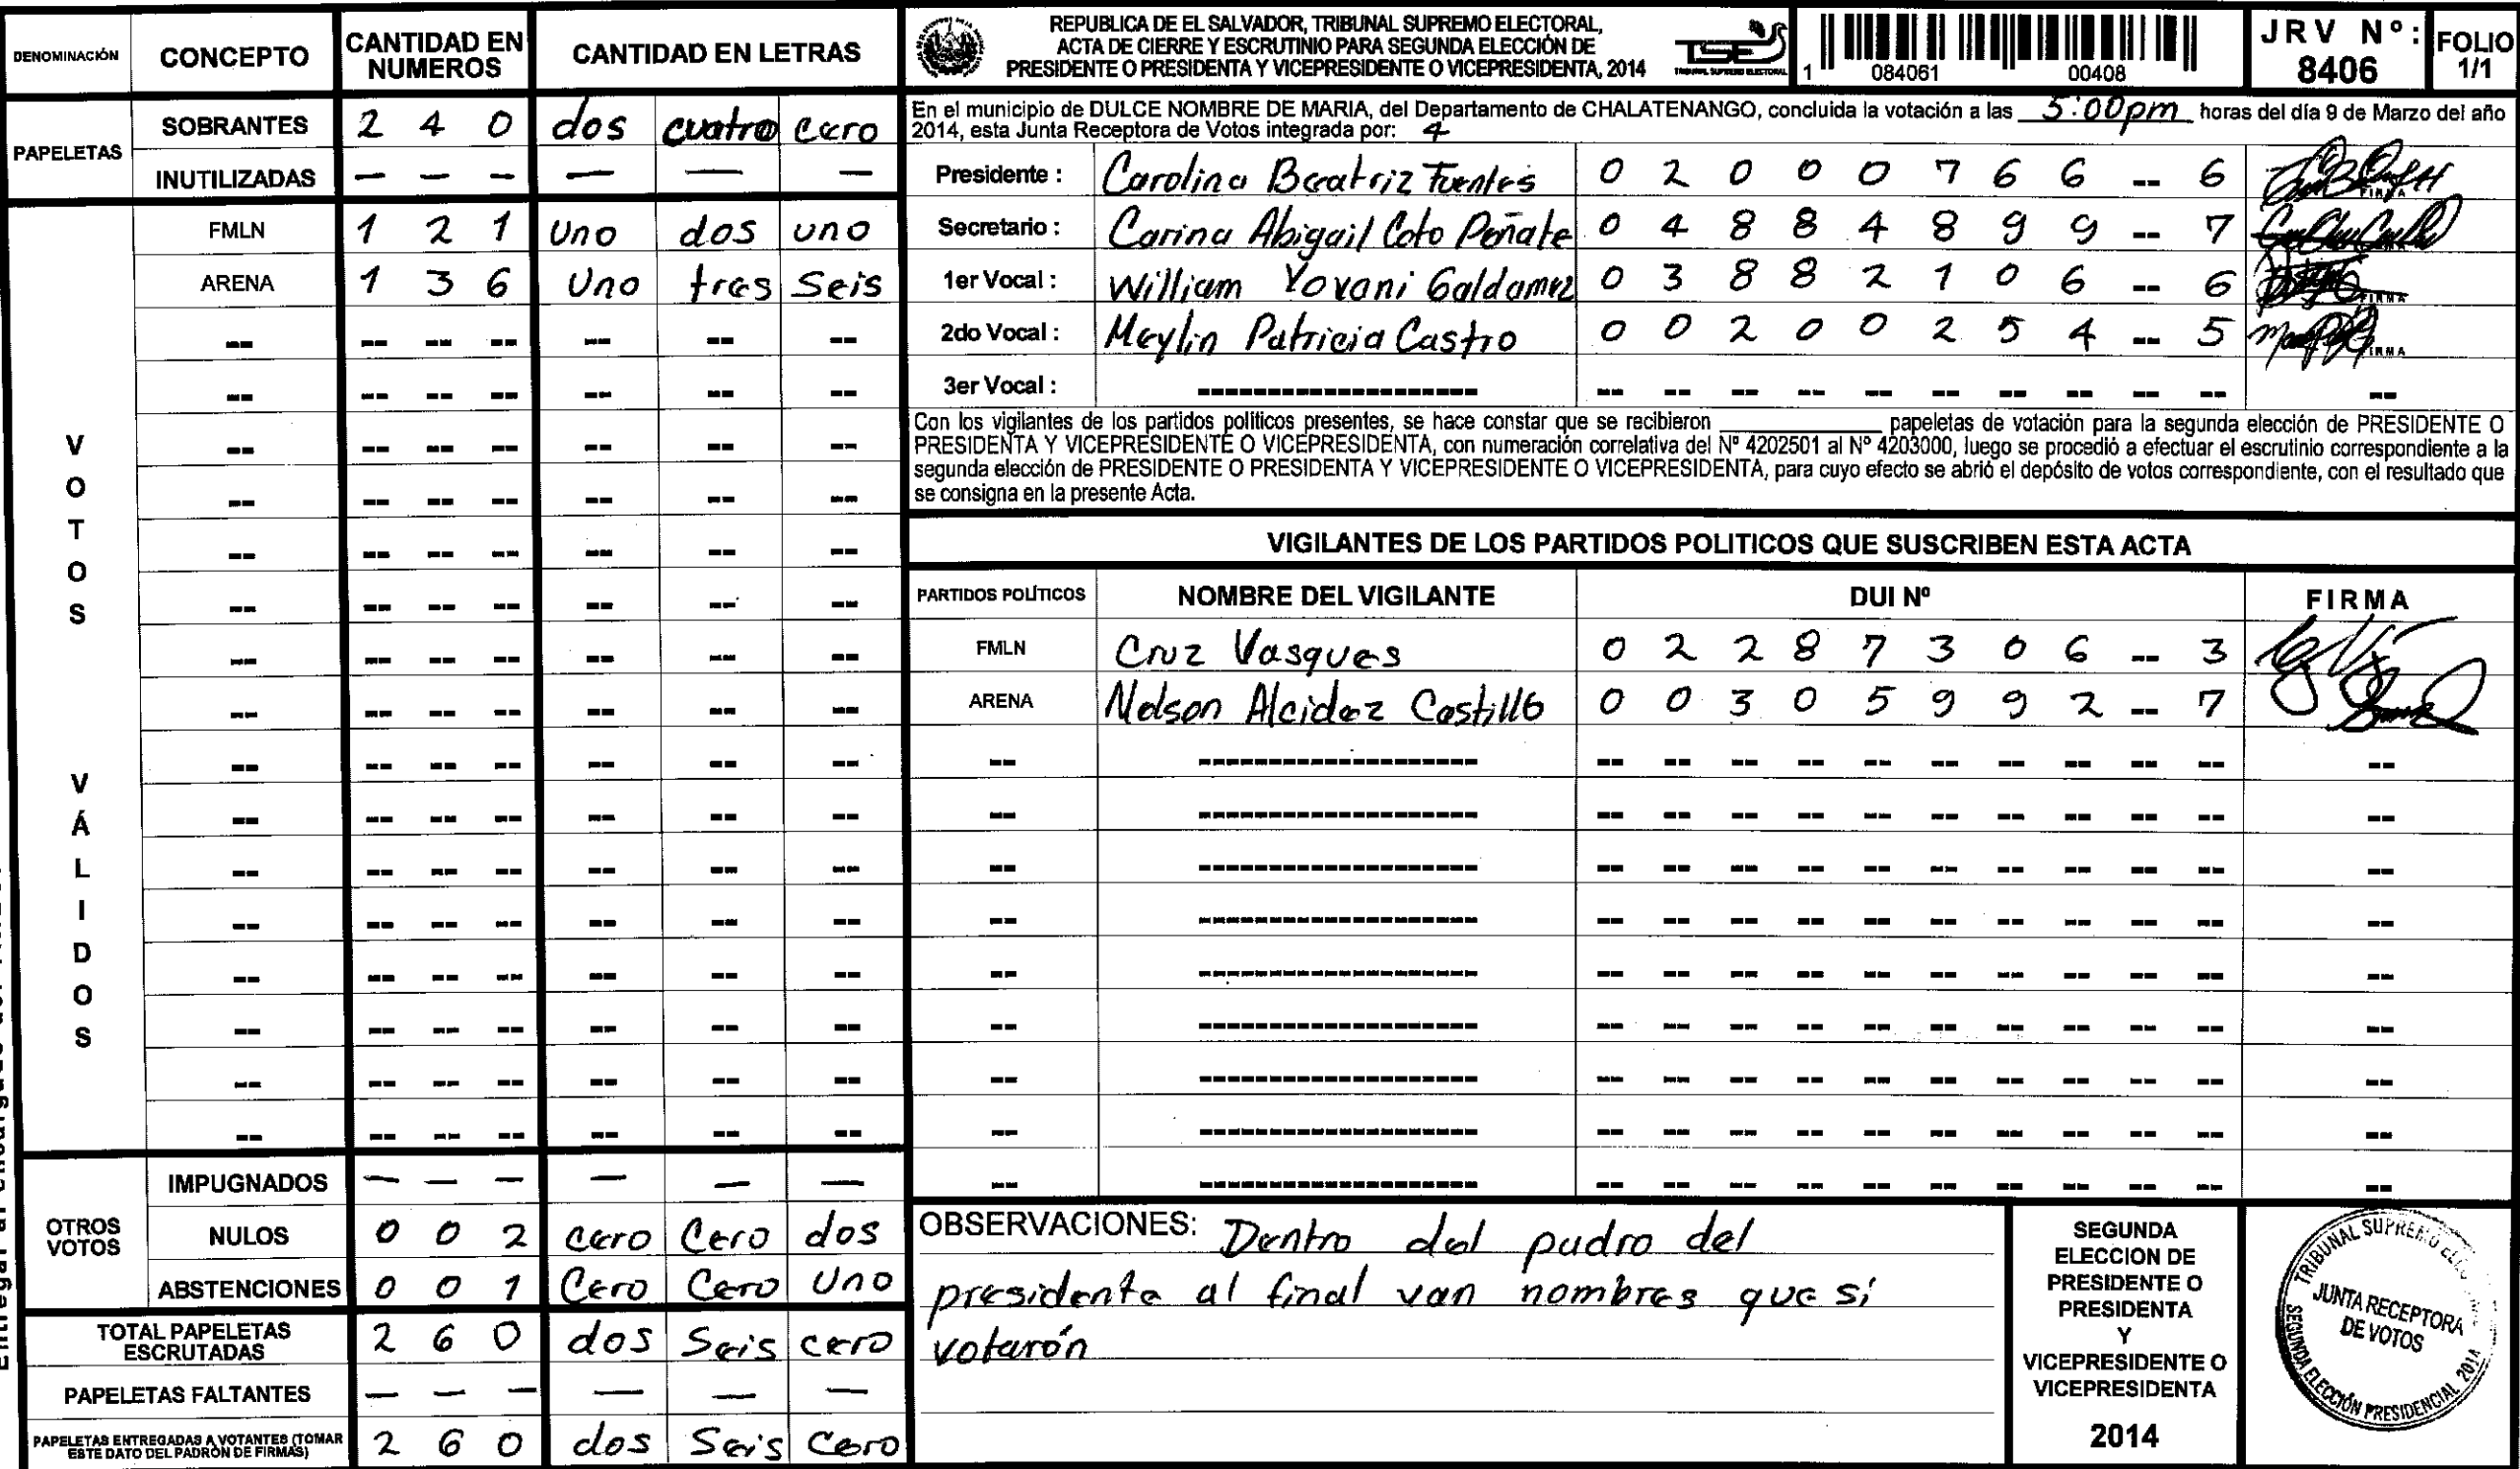 DENOMINACIÓN CONCEPTO CANTIDAD EN NUMEROS CANTIDAD EN LETRAS
PAPELETAS
SOBRANTES 2 4 0 dos cuatro cero
INUTILIZADAS — — — — — —
VOTOS VÁLIDOS
FMLN 1 2 1 Uno dos uno
ARENA 1 3 6 Uno tres Seis
OTROS VOTOS
IMPUGNADOS — — — — — —
NULOS 0 0 2 cero Cero dos
ABSTENCIONES 0 0 1 Cero Cero Uno
TOTAL PAPELETAS ESCRUTADAS 2 6 0 dos Seis cero
PAPELETAS FALTANTES — — — — — —
PAPELETAS ENTREGADAS A VOTANTES (TOMAR ESTE DATO DEL PADRÓN DE FIRMAS) 2 6 0 dos Seis Cero
REPUBLICA DE EL SALVADOR, TRIBUNAL SUPREMO ELECTORAL,
ACTA DE CIERRE Y ESCRUTINIO PARA SEGUNDA ELECCIÓN DE
PRESIDENTE O PRESIDENTA Y VICEPRESIDENTE O VICEPRESIDENTA, 2014
TSE
TRIBUNAL SUPREMO ELECTORAL
1 084061 00408
JRV Nº: 8406
FOLIO 1/1
En el municipio de DULCE NOMBRE DE MARIA, del Departamento de CHALATENANGO, concluida la votación a las 5:00pm horas del día 9 de Marzo del año
2014, esta Junta Receptora de Votos integrada por: 4
Presidente : Carolina Beatriz Fuentes 0 2 0 0 0 7 6 6 -- 6 FIRMA
Secretario : Carina Abigail Coto Peñate 0 4 8 8 4 8 9 9 -- 7
1er Vocal : William Yovani Galdamez 0 3 8 8 2 1 0 6 -- 6 FIRMA
2do Vocal : Meylin Patricia Castro 0 0 2 0 0 2 5 4 -- 5 FIRMA
3er Vocal :
Con los vigilantes de los partidos politicos presentes, se hace constar que se recibieron ________ papeletas de votación para la segunda elección de PRESIDENTE O
PRESIDENTA Y VICEPRESIDENTE O VICEPRESIDENTA, con numeración correlativa del Nº 4202501 al Nº 4203000, luego se procedió a efectuar el escrutinio correspondiente a la
segunda elección de PRESIDENTE O PRESIDENTA Y VICEPRESIDENTE O VICEPRESIDENTA, para cuyo efecto se abrió el depósito de votos correspondiente, con el resultado que
se consigna en la presente Acta.
VIGILANTES DE LOS PARTIDOS POLITICOS QUE SUSCRIBEN ESTA ACTA
PARTIDOS POLÍTICOS NOMBRE DEL VIGILANTE DUI Nº FIRMA
FMLN Cruz Vasques 0 2 2 8 7 3 0 6 -- 3
ARENA Nelson Alcidez Castillo 0 0 3 0 5 9 9 2 -- 7
OBSERVACIONES: Dentro del padro del
presidente al final van nombres que sí
votarón
SEGUNDA
ELECCION DE
PRESIDENTE O
PRESIDENTA
Y
VICEPRESIDENTE O
VICEPRESIDENTA
2014
TRIBUNAL SUPREMO
JUNTA RECEPTORA
DE VOTOS
SEGUNDA ELECCIÓN PRESIDENCIAL 2014
Entregar al encargado del